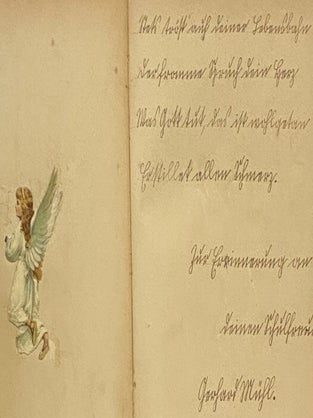 Stets tröst auf deiner Lebensbahn
Der fromme Spruch dein Herz
Was Gott tut, das ist wohlgetan
Er stillet allen Schmerz.
Zur Erinnerung an
deinen Schulfreu
Gerhard Mühl.